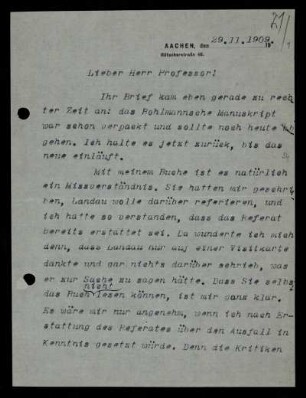 21/1
AACHEN, den 29.II.1909.
Lieber Herr Professor!
Ihr Brief kam eben gerade zu rech
ter Zeit an: das Pohlmannsche Manuskript
war schon verpackt und sollte noch heute ab
gehen. Ich halte es jetzt zurück, bis das
neue einläuft.
Mit meinem Buche ist es natürlich
ein Missverständnis. Sie hatten mir geschrie
ben, Landau wolle darüber referieren, und
ich hatte so verstanden, dass das Referat
bereits erstattet sei. Da wunderte ich mich
denn, dass Landau nur auf einer Visitkarte
dankte und gar nichts darüber schrieb, was
er zur Sache zu sagen hätte. Dass Sie selbst
nicht
das Buch lesen können, ist mir ganz klar.
Es wäre mir nur angenehm, wenn ich nach Er-
stattung des Referates über den Ausfall in
Kenntnis gesetzt würde. Denn die Kritiken